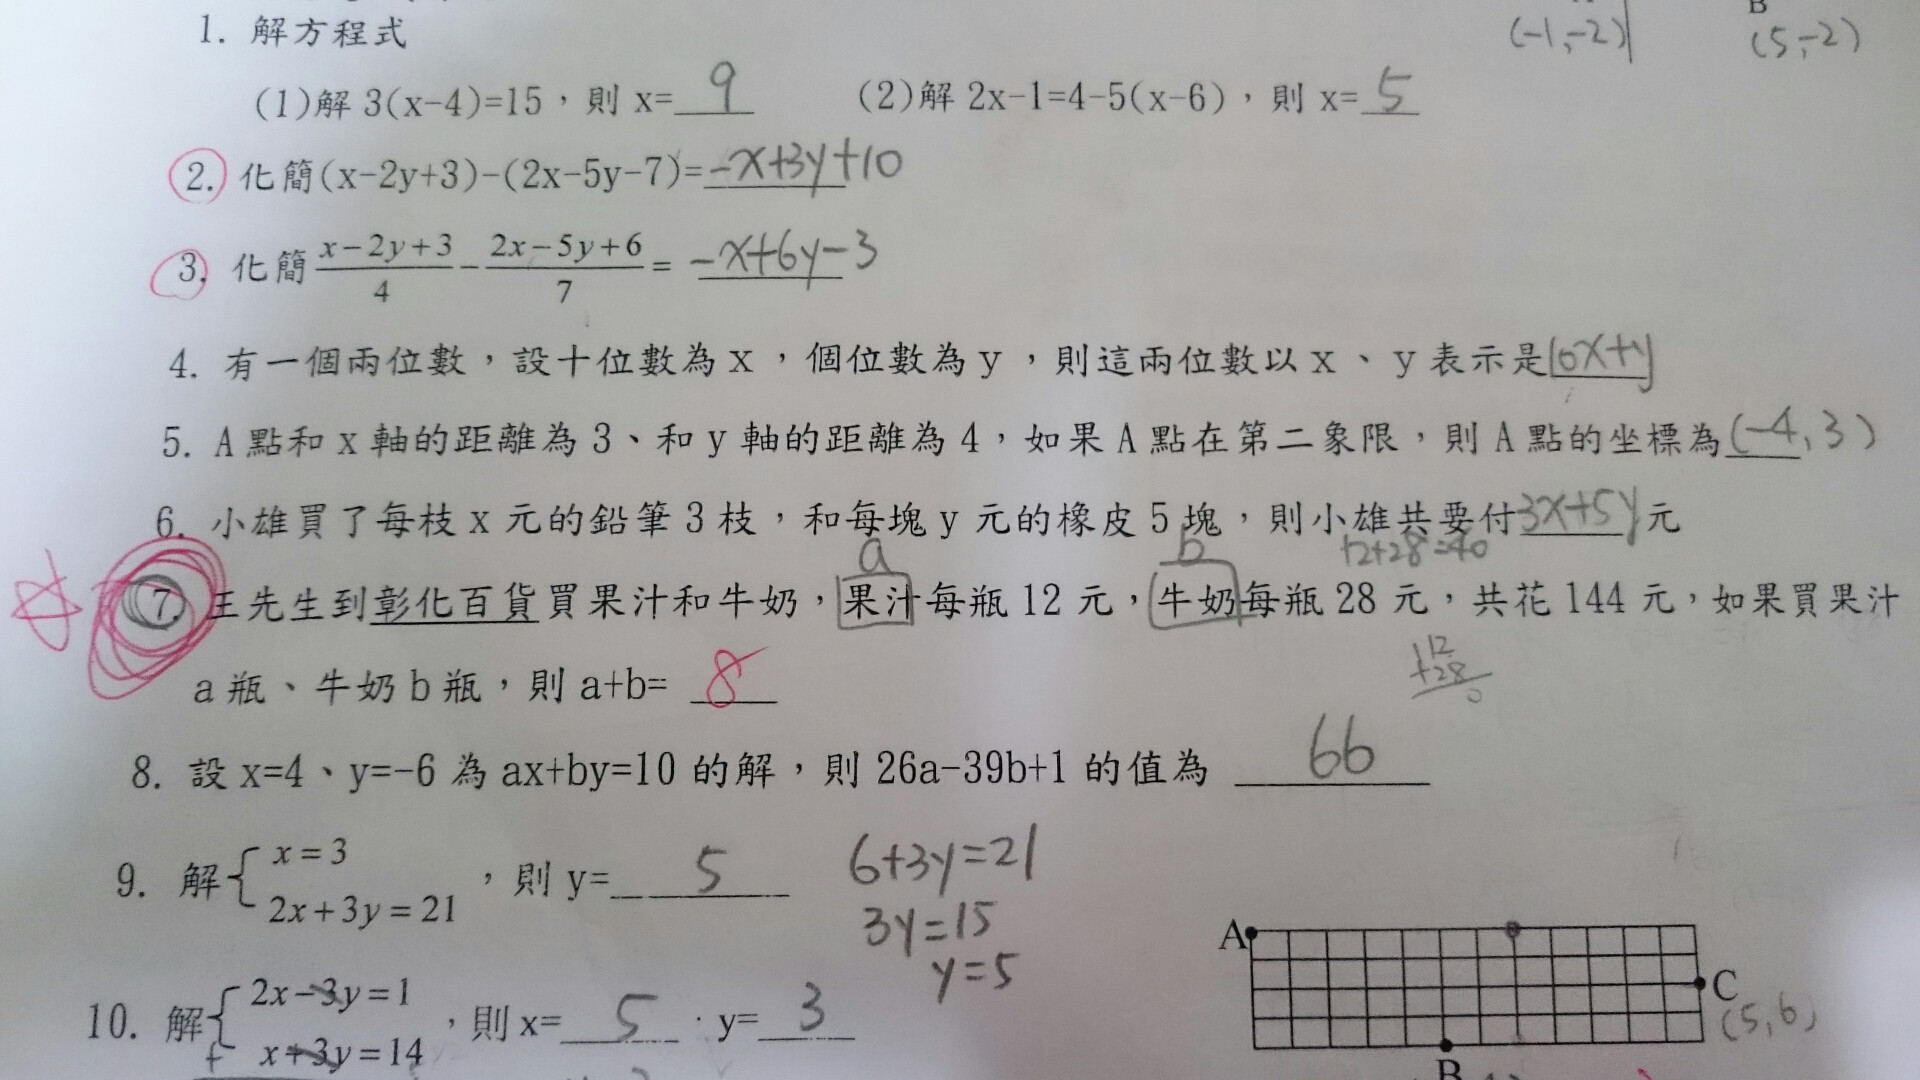 1. 解方程式
B
(-1,-2)
(5,-2)
(1)解 3(x-4)=15，則 x= 9
(2)解 2x-1=4-5(x-6)，則 x= 5
2. 化簡(x-2y+3)-(2x-5y-7)= -x+3y+10
3. 化簡 \frac{x-2y+3}{4} - \frac{2x-5y+6}{7} = -x+6y-3
4. 有一個兩位數，設十位數為 x ，個位數為 y ，則這兩位數以 x 、 y 表示是 10x+y
5. A 點和 x 軸的距離為 3、和 y 軸的距離為 4，如果 A 點在第二象限，則 A 點的坐標為 (-4,3)
6. 小雄買了每枝 x 元的鉛筆 3 枝，和每塊 y 元的橡皮 5 塊，則小雄共要付 3x+5y 元
a b 12+28=40
7. 王先生到彰化百貨買果汁和牛奶，果汁每瓶 12 元，牛奶每瓶 28 元，共花 144 元，如果買果汁
12
+28
0
a 瓶、牛奶 b 瓶，則 a+b= 8
8. 設 x=4、y=-6 為 ax+by=10 的解，則 26a-39b+1 的值為 66
9. 解{ x=3
2x+3y=21 ，則 y= 5
6+3y=21
3y=15
y=5
10. 解{ 2x-3y=1
+ x+3y=14 ，則 x= 5 · y= 3
A
C
(5,6)
B